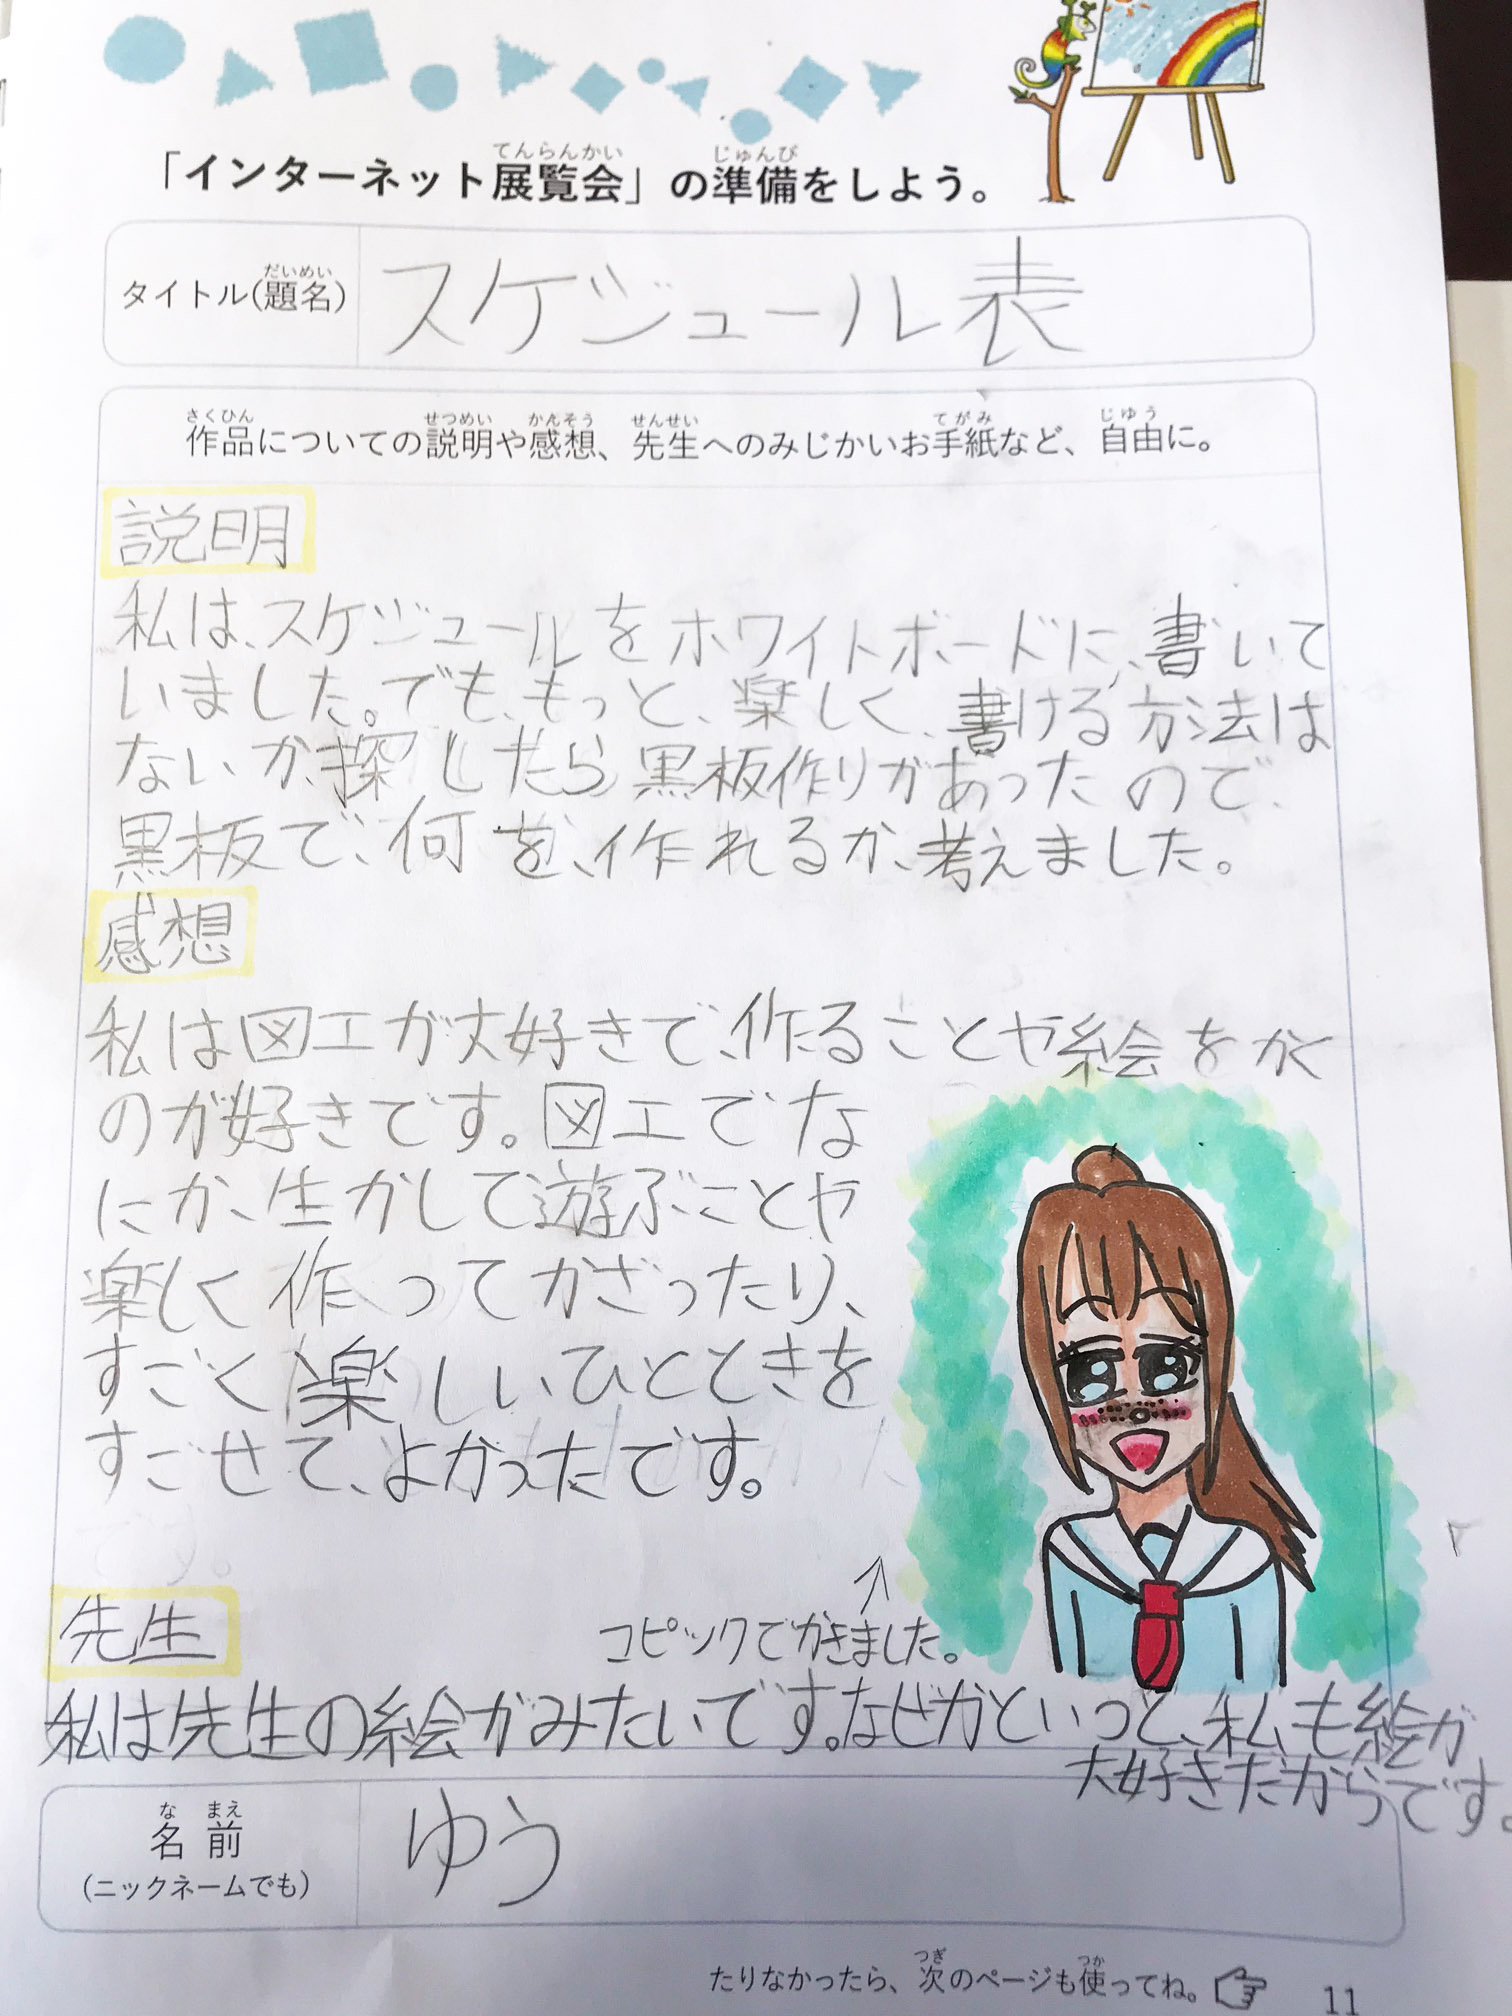 「インターネット展覧会」の準備をしよう。
タイトル(題名)
スケジュール表
作品についての説明や感想、先生へのみじかいお手紙など、自由に。
説明
私は、スケジュールをホワイトボードに、書いて
いました。でも、もっと、楽しく、書ける方法は
ないか、探したら黒板作りがあったので、
黒板で、何を、作れるか、考えました。
感想
私は図工が大好きで、作ることや絵をかく
のが好きです。図工でな
にか、生かして遊ぶことや
楽しく作ってかざったり、
すごく楽しいひとときを
すごせて、よかったです。
コピックでかきました。
先生
私は先生の絵がみたいです。なぜかというと、私も絵が
大好きだからです。
名前
(ニックネームでも)
ゆう
たりなかったら、次のページも使ってね。
11